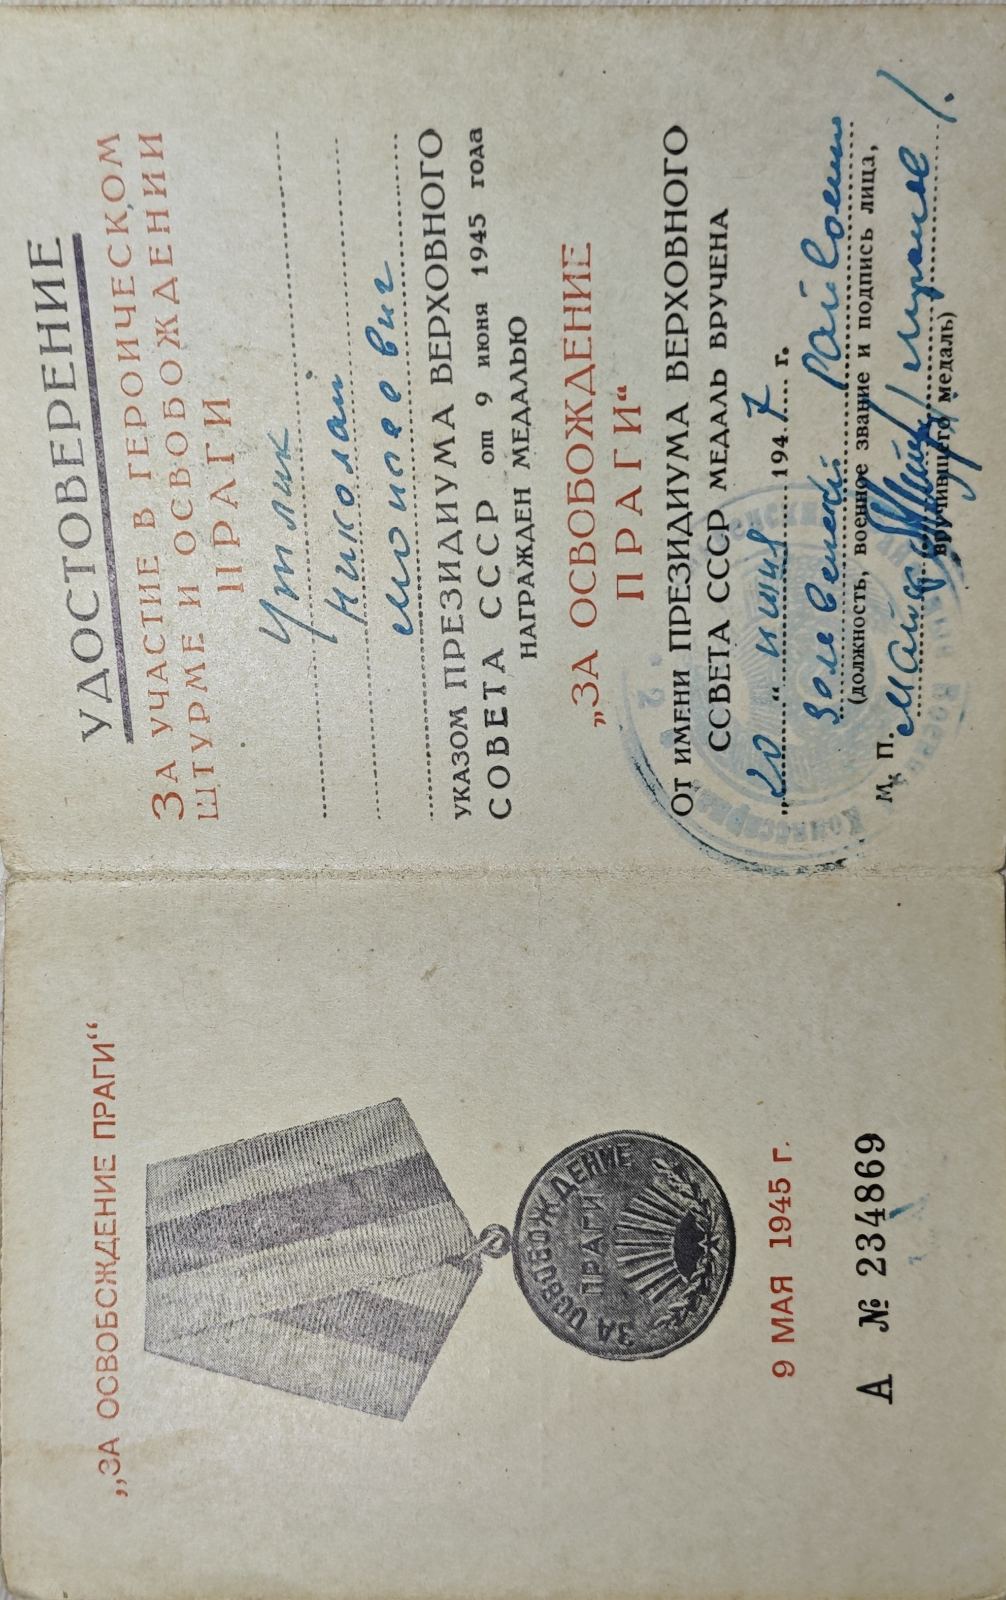 „ЗА ОСВОБСЖДЕНИЕ ПРАГИ“
ЗА ОСВОБОЖДЕНИЕ
ПРАГИ
9 МАЯ 1945 г.
А № 234869
УДОСТОВЕРЕНИЕ
ЗА УЧАСТИЕ В ГЕРОИЧЕСКОМ
ШТУРМЕ И ОСВОБОЖДЕНИИ
ПРАГИ
Утлик
Николай
УКАЗОМ ПРЕЗИДИУМА ВЕРХОВНОГО
СОВЕТА СССР от 9 июня 1945 года
НАГРАЖДЕН МЕДАЛЬЮ
„ЗА ОСВОБОЖДЕНИЕ
ПРАГИ“
От ИМЕНИ ПРЕЗИДИУМА ВЕРХОВНОГО
ССВЕТА СССР МЕДАЛЬ ВРУЧЕНА
„20“ 1947 г.
Райвоенком
(должность, военное звание и подпись лица,
М. П. Майор
вручившего медаль)